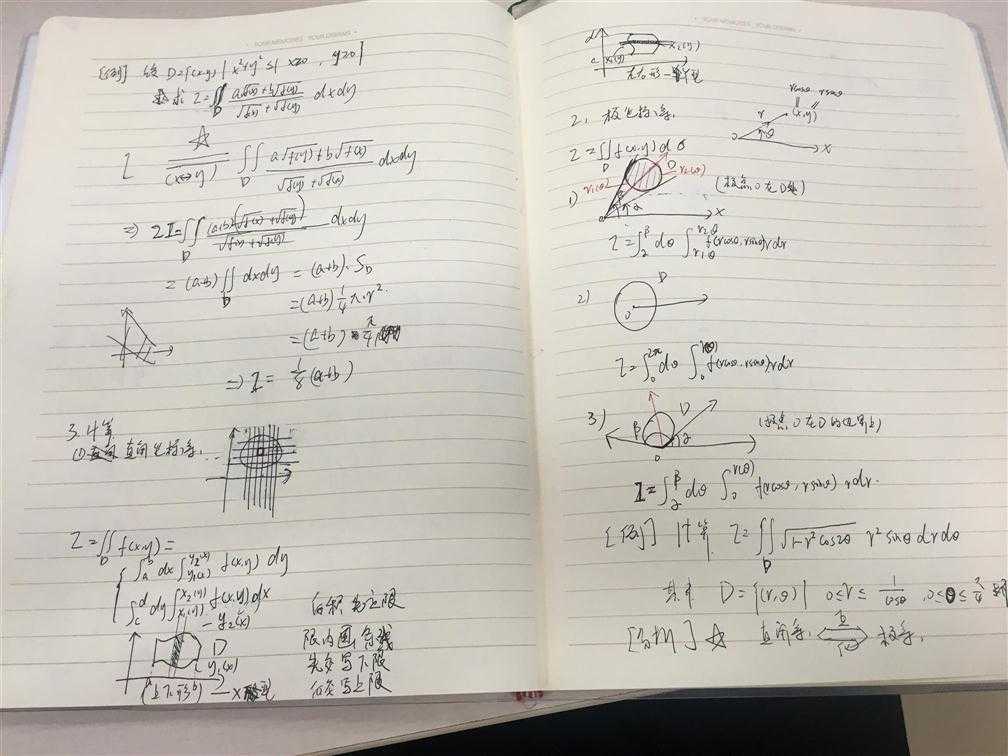 [例] 设 D={(x,y) | x²+y²≤1 x≥0, y≥0}
求 I=∬_D (a√f(x)+b√f(y))/(√f(x)+√f(y)) dxdy
I =(x↔y)= ∬_D (a√f(y)+b√f(x))/(√f(y)+√f(x)) dxdy
☆
⇒ 2I=∬_D (a+b)(√f(x)+√f(y))/(√f(x)+√f(y)) dxdy
= (a+b)∬_D dxdy = (a+b)·S_D
=(a+b) 1/4 π·r²
=(a+b) π/4
⇒ I= 1/8 (a+b)
3. 计算
① 直角坐标系:
I=∬_D f(x,y)=
{ ∫_a^b dx ∫_{y₁(x)}^{y₂(x)} f(x,y) dy
∫_c^d dy ∫_{x₁(y)}^{x₂(y)} f(x,y) dx
y₂(x)
D
y₁(x)
a b
(上下形) — X型
后积先定限
限内画条线
先交写下限
后交写上限
d
c
x₁(y) x₂(y)
左右形—Y型
2. 极坐标系:
rcosθ rsinθ
(x,y)
r
θ
O x
I=∬_D f(x,y)dσ
1) r₁(θ) D r₂(θ)
β α
O x
(极点O在D外)
I=∫_α^β dθ ∫_{r₁θ}^{r₂θ} f(rcosθ,rsinθ)rdr
2) D
O
I=∫_0^{2π} dθ ∫_0^{r(θ)} f(rcosθ,rsinθ)rdr
3) β D α
O
(极点O在D的边界上)
I=∫_α^β dθ ∫_0^{r(θ)} f(rcosθ,rsinθ) rdr.
[例] 计算 I=∬_D √(1-r²cos2θ) r²sinθ drdθ
其中 D={(r,θ) | 0≤r≤ 1/cosθ ,0≤θ≤π/4
[分析] ☆ 直角系 ⇔ 极系.